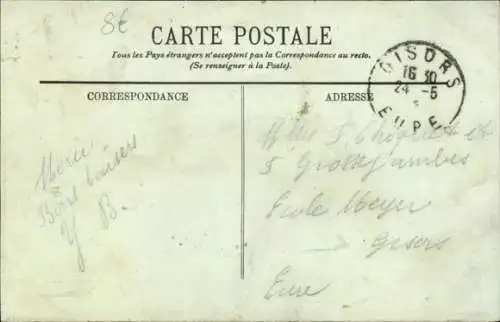 8E
CARTE POSTALE
Tous les Pays étrangers n'acceptent pas la Correspondance au recto.
(Se renseigner à la Poste).
CORRESPONDANCE
ADRESSE
GISORS
16 30
24 - 5
EURE
Bons baisers
Y B.
Ecole Meyer
Gisors
Eure